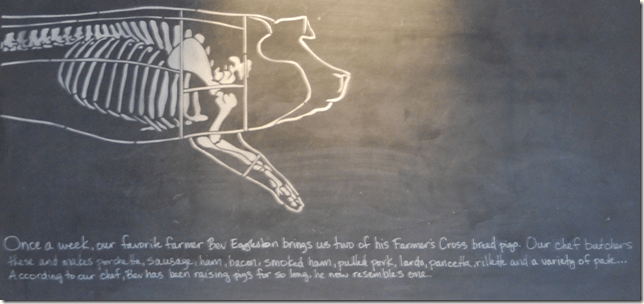 Once a week, our favorite farmer Bev Eggleston brings us two of his Farmer's Cross breed pigs. Our chef butchers
these and makes porchetta, sausage, ham, bacon, smoked ham, pulled pork, lardo, pancetta, rillette and a variety of pate....
According to our chef, Bev has been raising pigs for so long, he now resembles one...